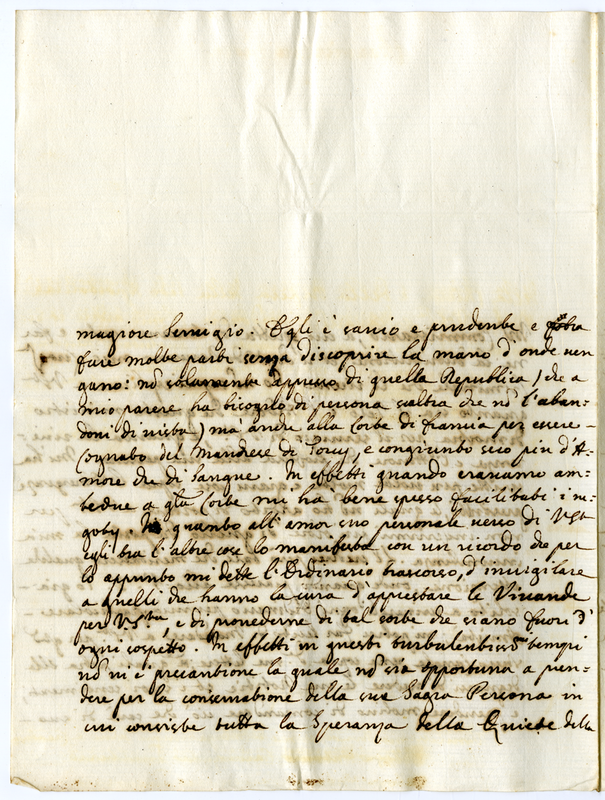 magiore Servigio. Egli è savio e prudente e potra
fare molte parti senza discoprire la mano d'onde ven
gano: nõ solamente appresso di quella Republica (che a
mio parere ha bisogno di persona scaltra che nõ l'aban-
doni di vista) ma anche alla Corte di francia per essere
Cognato del Marchese di Torcy, e congiunto seco piu d'A-
more che di Sangue. In effetti quando eravamo am-
bedue a qta Corte mi ha bene spesso facilitati i ne
goty. quanto all'amor suo personale verso di V. Stà
egli tra l'altre cose lo manifesta con un ricordo che per
lo appunto mi dette l'Ordinario trascorso, d'invigilare
a quelli che hanno la cura d'apprestare le Vivande
per V. Stà, e di provederne di tal sorte che siano fuori d'
ogni sospetto. In effetti in questi turbulentissmi tempi
nõ vi è precautione la quale nõ sia opportuna a pren-
dere per la conservatione della sua Sagra Persona in
cui consiste tutta la Speranza della Quiete della